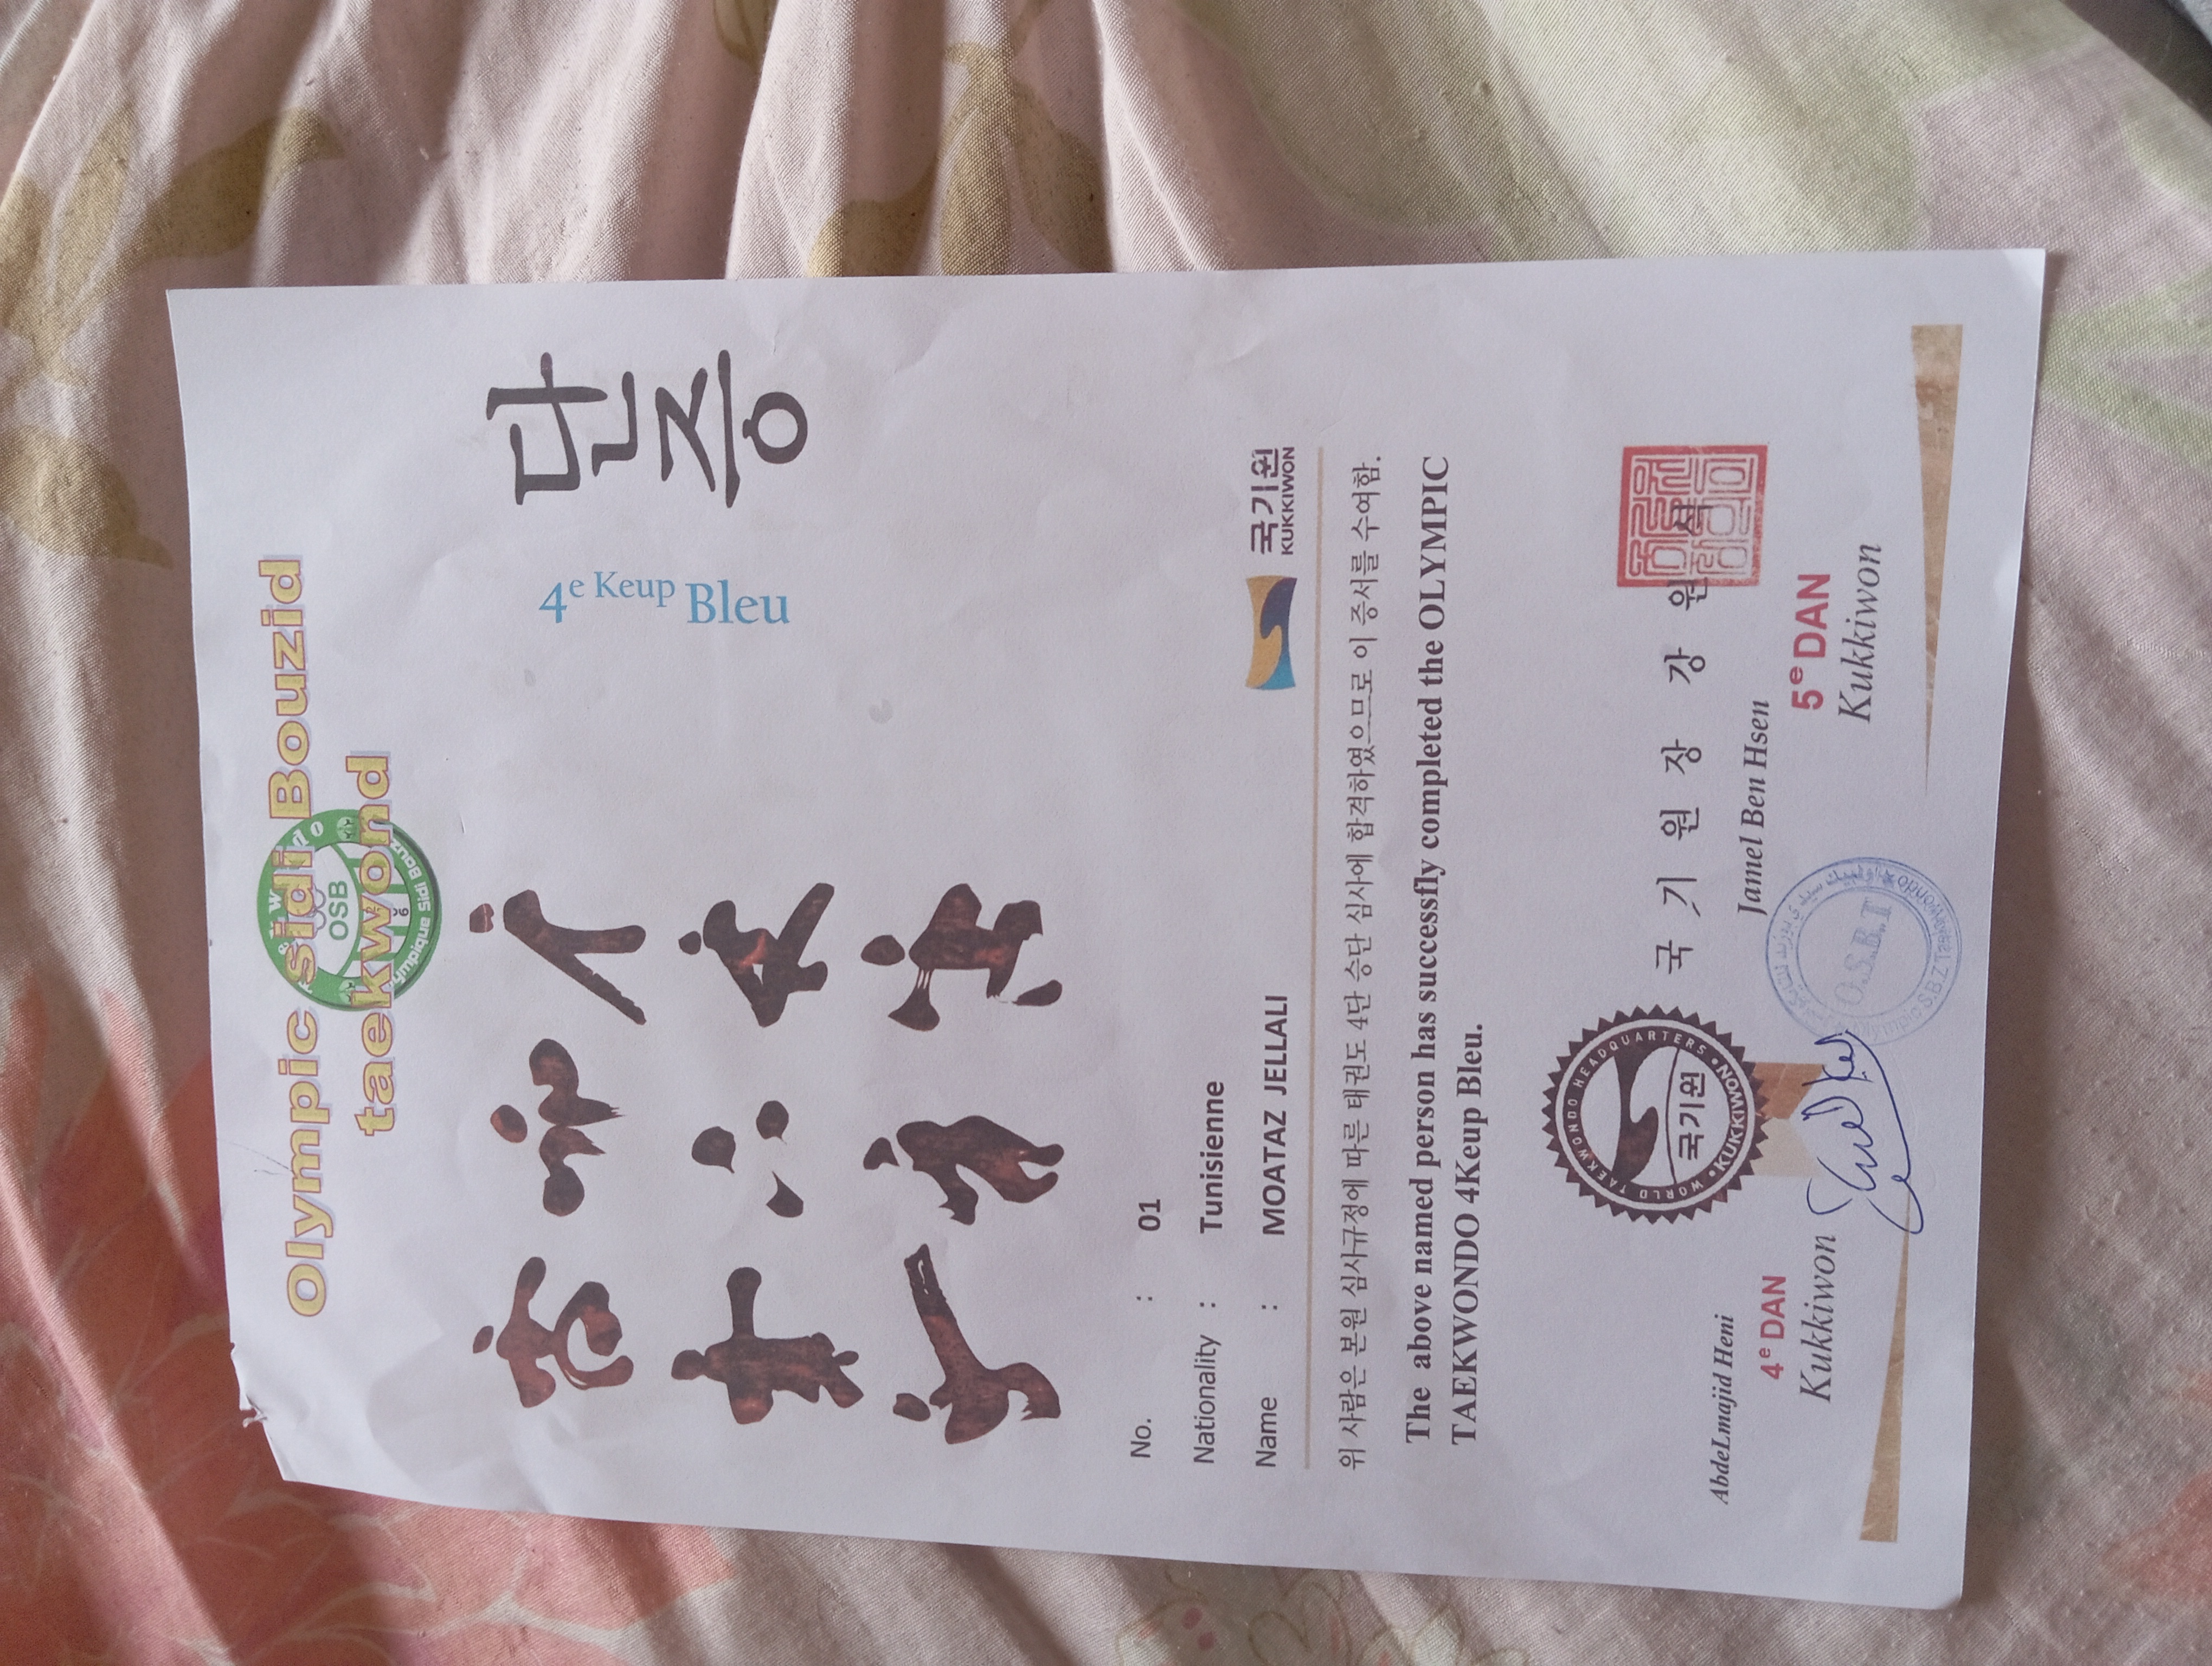 Olympic sidi Bouzid
taekwond
OSB
ympique Sidi Bouz
4e Keup
Bleu
단증
No. : 01
Nationality : Tunisienne
Name : MOATAZ JELLALI
국기원
KUKKIWON
위 사람은 본원 심사규정에 따른 태권도 4단 승단 심사에 합격하였으므로 이 증서를 수여함.
The above named person has successfly completed the OLYMPIC
TAEKWONDO 4Keup Bleu.
WORLD TAEKWONDO HEADQUARTERS • KUKKIWON •
국기원
국 기 원 장 강 원 식
AbdeLmajid Heni
4e DAN
Kukkiwon
Jamel Ben Hsen
5e DAN
Kukkiwon
O.S.B.T
Olympic S.B.Z Taekwondo